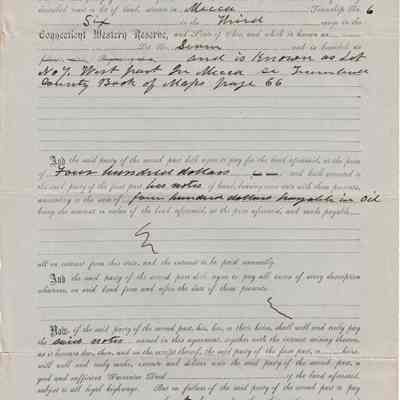 described tract or lot of land, situate in Mecca Township 6
Six in the Third range in the
Connecticut Western Reserve, and State of Ohio, and which is known as
Lot No. Seven and is bounded as
and is Known as Lot
No 7. West part In Mecca se Trumbull
County Book of Maps page 66
And the said party of the second part doth agree to pay for the land aforesaid, at the price
of Four hundred dollars and hath executed to
the said party of the first part his notes of hand, bearing even date with these presents,
amounting to the sum of four hundred dollars payable in Oil
being the amount in value of the land aforesaid, at the price aforesaid, and made payable
all on interest from this date, and the interest to be paid annually.
And the said party of the second part doth agree to pay all taxes of every description
whatever, on said land from and after the date of these presents.
Now, if the said party of the second part, his, her, or their heirs, shall well and truly pay
the said notes named in this agreement, together with the interest arising thereon,
as it becomes due, then, and on the receipt thereof, the said party of the first part, heirs
will well and truly make, execute and deliver unto the said party of the second part, a
good and sufficient Warrantee Deed of the land aforesaid,
subject to all legal highways. But on failure of the said party of the second part to pay